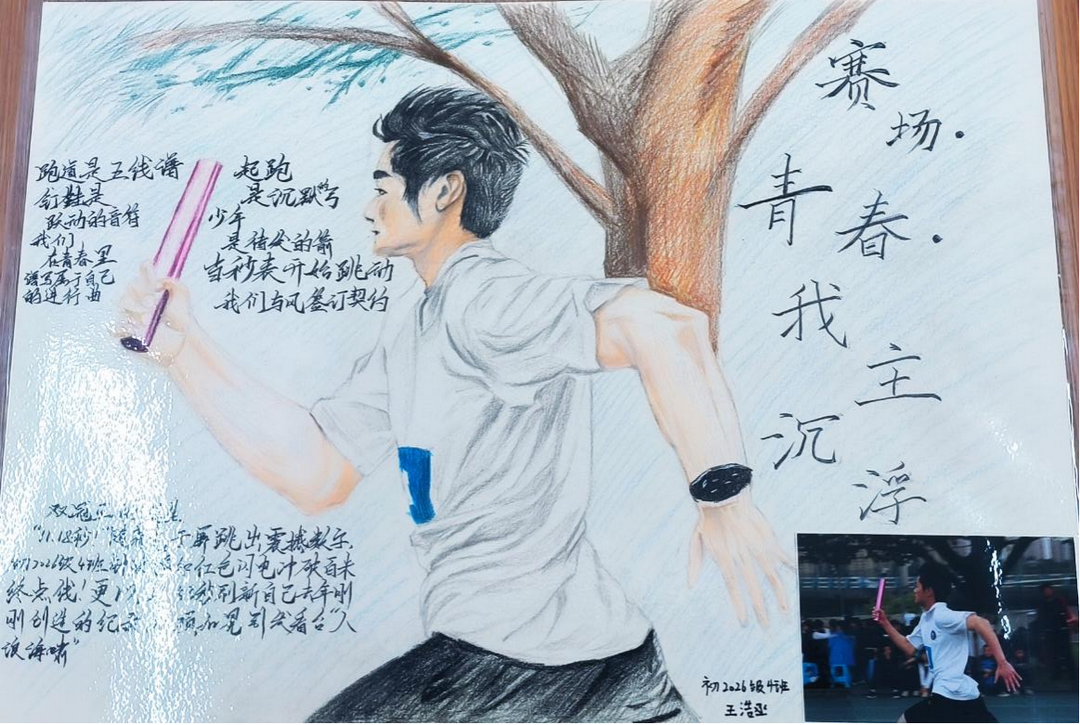 赛场·
青春·
我主
沉浮
跑道是五线谱
钉鞋是
跃动的音符
我们
在青春里
谱写属于自己
的进行曲
起跑
是沉默的弓
少年
是待发的箭
当秒表开始跳动
我们与风签订契约
双冠王的
"11.18秒!" 屏跳出震撼数字
初2026级4班 红色闪电冲破百米
终点线!更 秒刷新自己去年刚
刚创造的纪录 引发看台"人
浪海啸"
初2026级4班
王浩丞